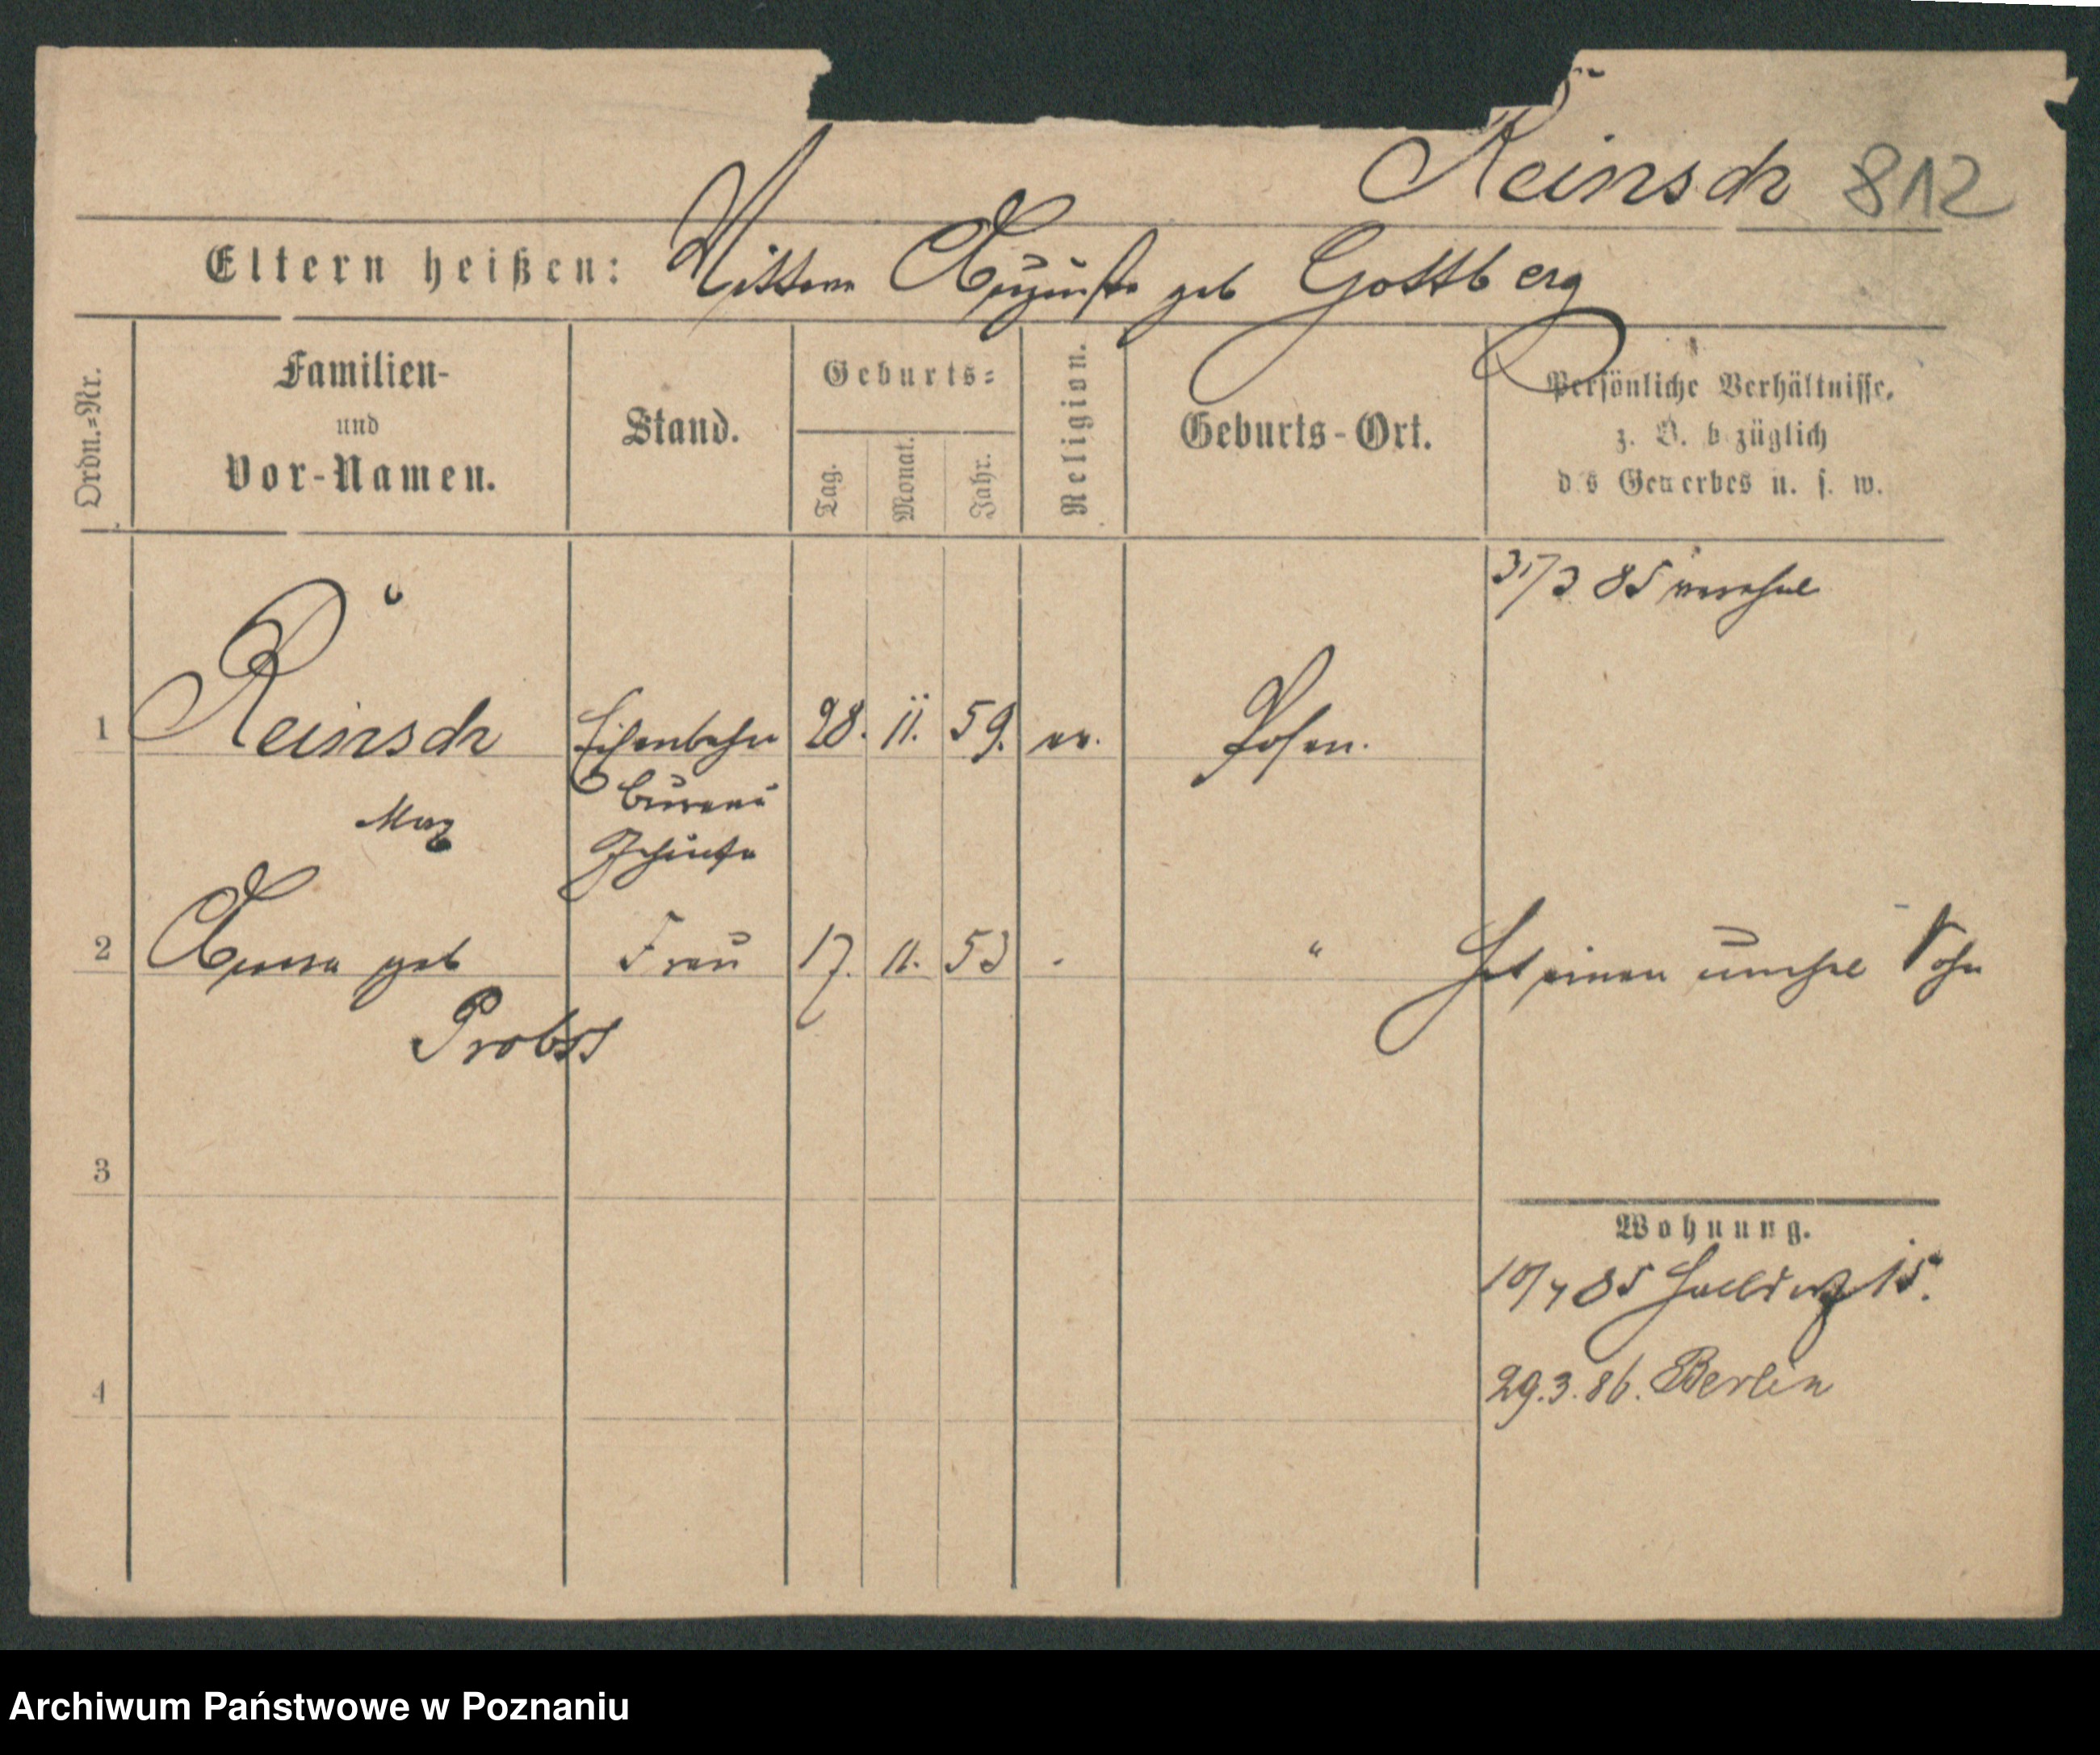 Reinsch 812
Eltern heißen: Auguste geb Gottberg
Ordn.=Nr.
Familien-
und
Vor-Namen.
Stand.
Geburts=
Tag.
Monat.
Jahr.
Religion.
Geburts-Ort.
Persönliche Verhältnisse,
z. B. bezüglich
des Gewerbes u. s. w.
31/3 85 verehel
1 Reinsch Eisenbahn 28. 11. 59. ev. Posen.
Bureau
Max Gehülfe
2 geb Frau 17. 11. 53 - " Hat einen unehel Sohn
Probst
3
Wohnung.
10/4 85 15.
4 29.3.86. Berlin
Archiwum Państwowe w Poznaniu